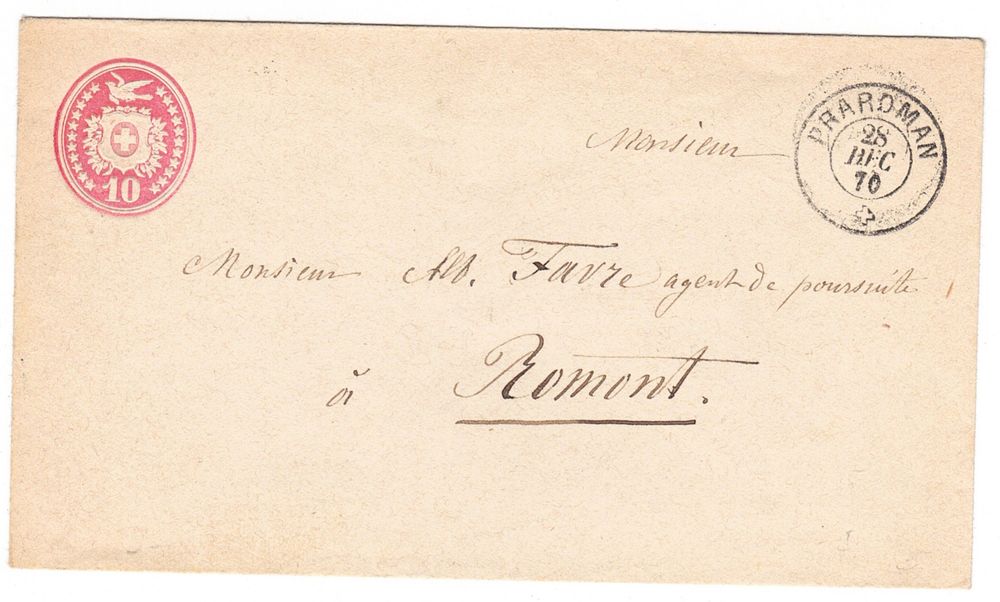 10
PRARDMAN
28
DEC
70
Monsieur
Monsieur Alb. Favre agent de poursuite
à Romont.